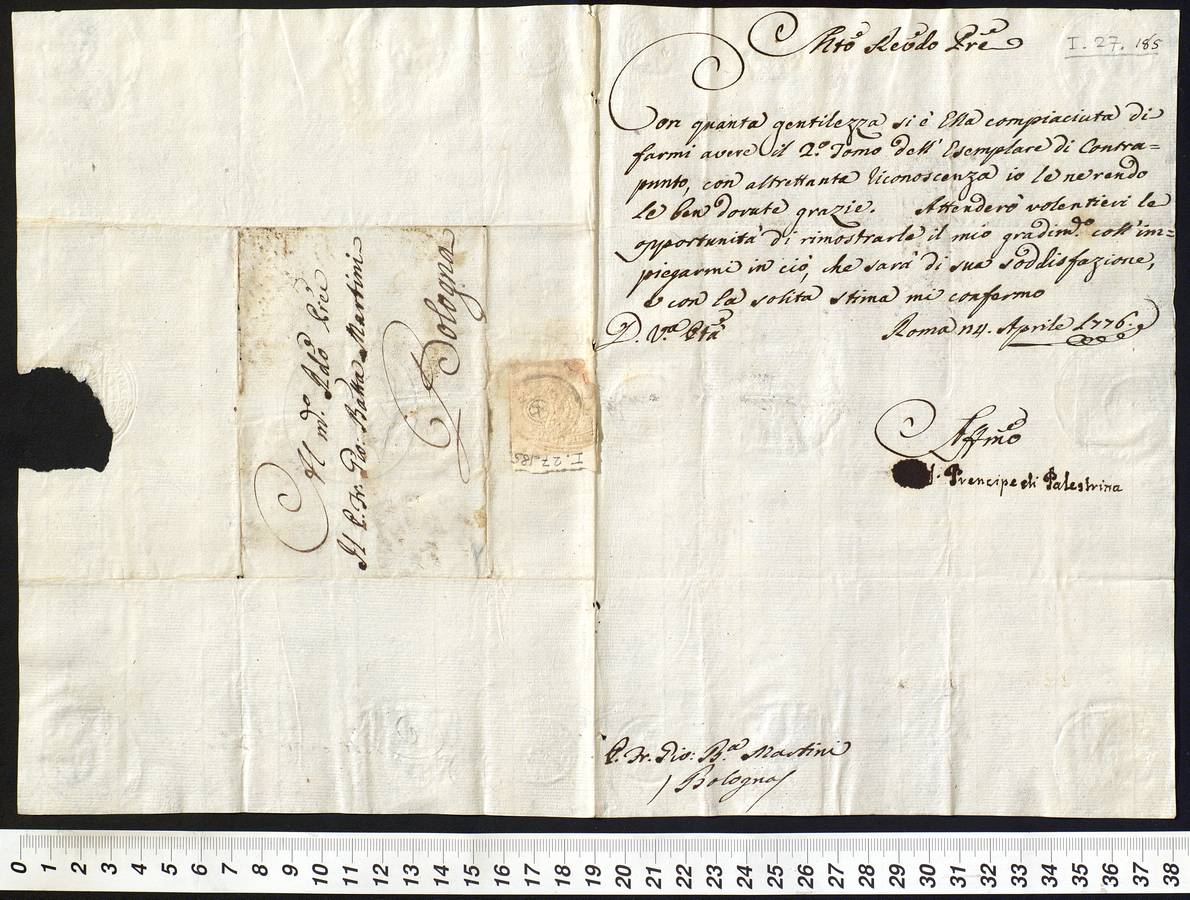 Al m.to Rdo Pre
Il P. Fr. Gio: Batta Martini
Bologna
I. 27. 185
I. 27. 185
Mto Revdo Pre
Con quanta gentilezza si è Ella compiaciuta di
farmi avere il 2.º Tomo dell'Esemplare di Contra=
punto, con altrettanta riconoscenza io le ne rendo
le ben dovute grazie. Attenderò volentieri le
opportunità di rimostrarle il mio gradim.to coll'im=
piegarmi in ciò, che sarà di sua soddisfazione,
e con la solita stima mi confermo
D. V.a Ptà Roma 4. Aprile 1776.
Affmo
Prencipe di Palestrina
P. Fr. Gio: B.a Martini
/ Bologna /
0 1 2 3 4 5 6 7 8 9 10 11 12 13 14 15 16 17 18 19 20 21 22 23 24 25 26 27 28 29 30 31 32 33 34 35 36 37 38